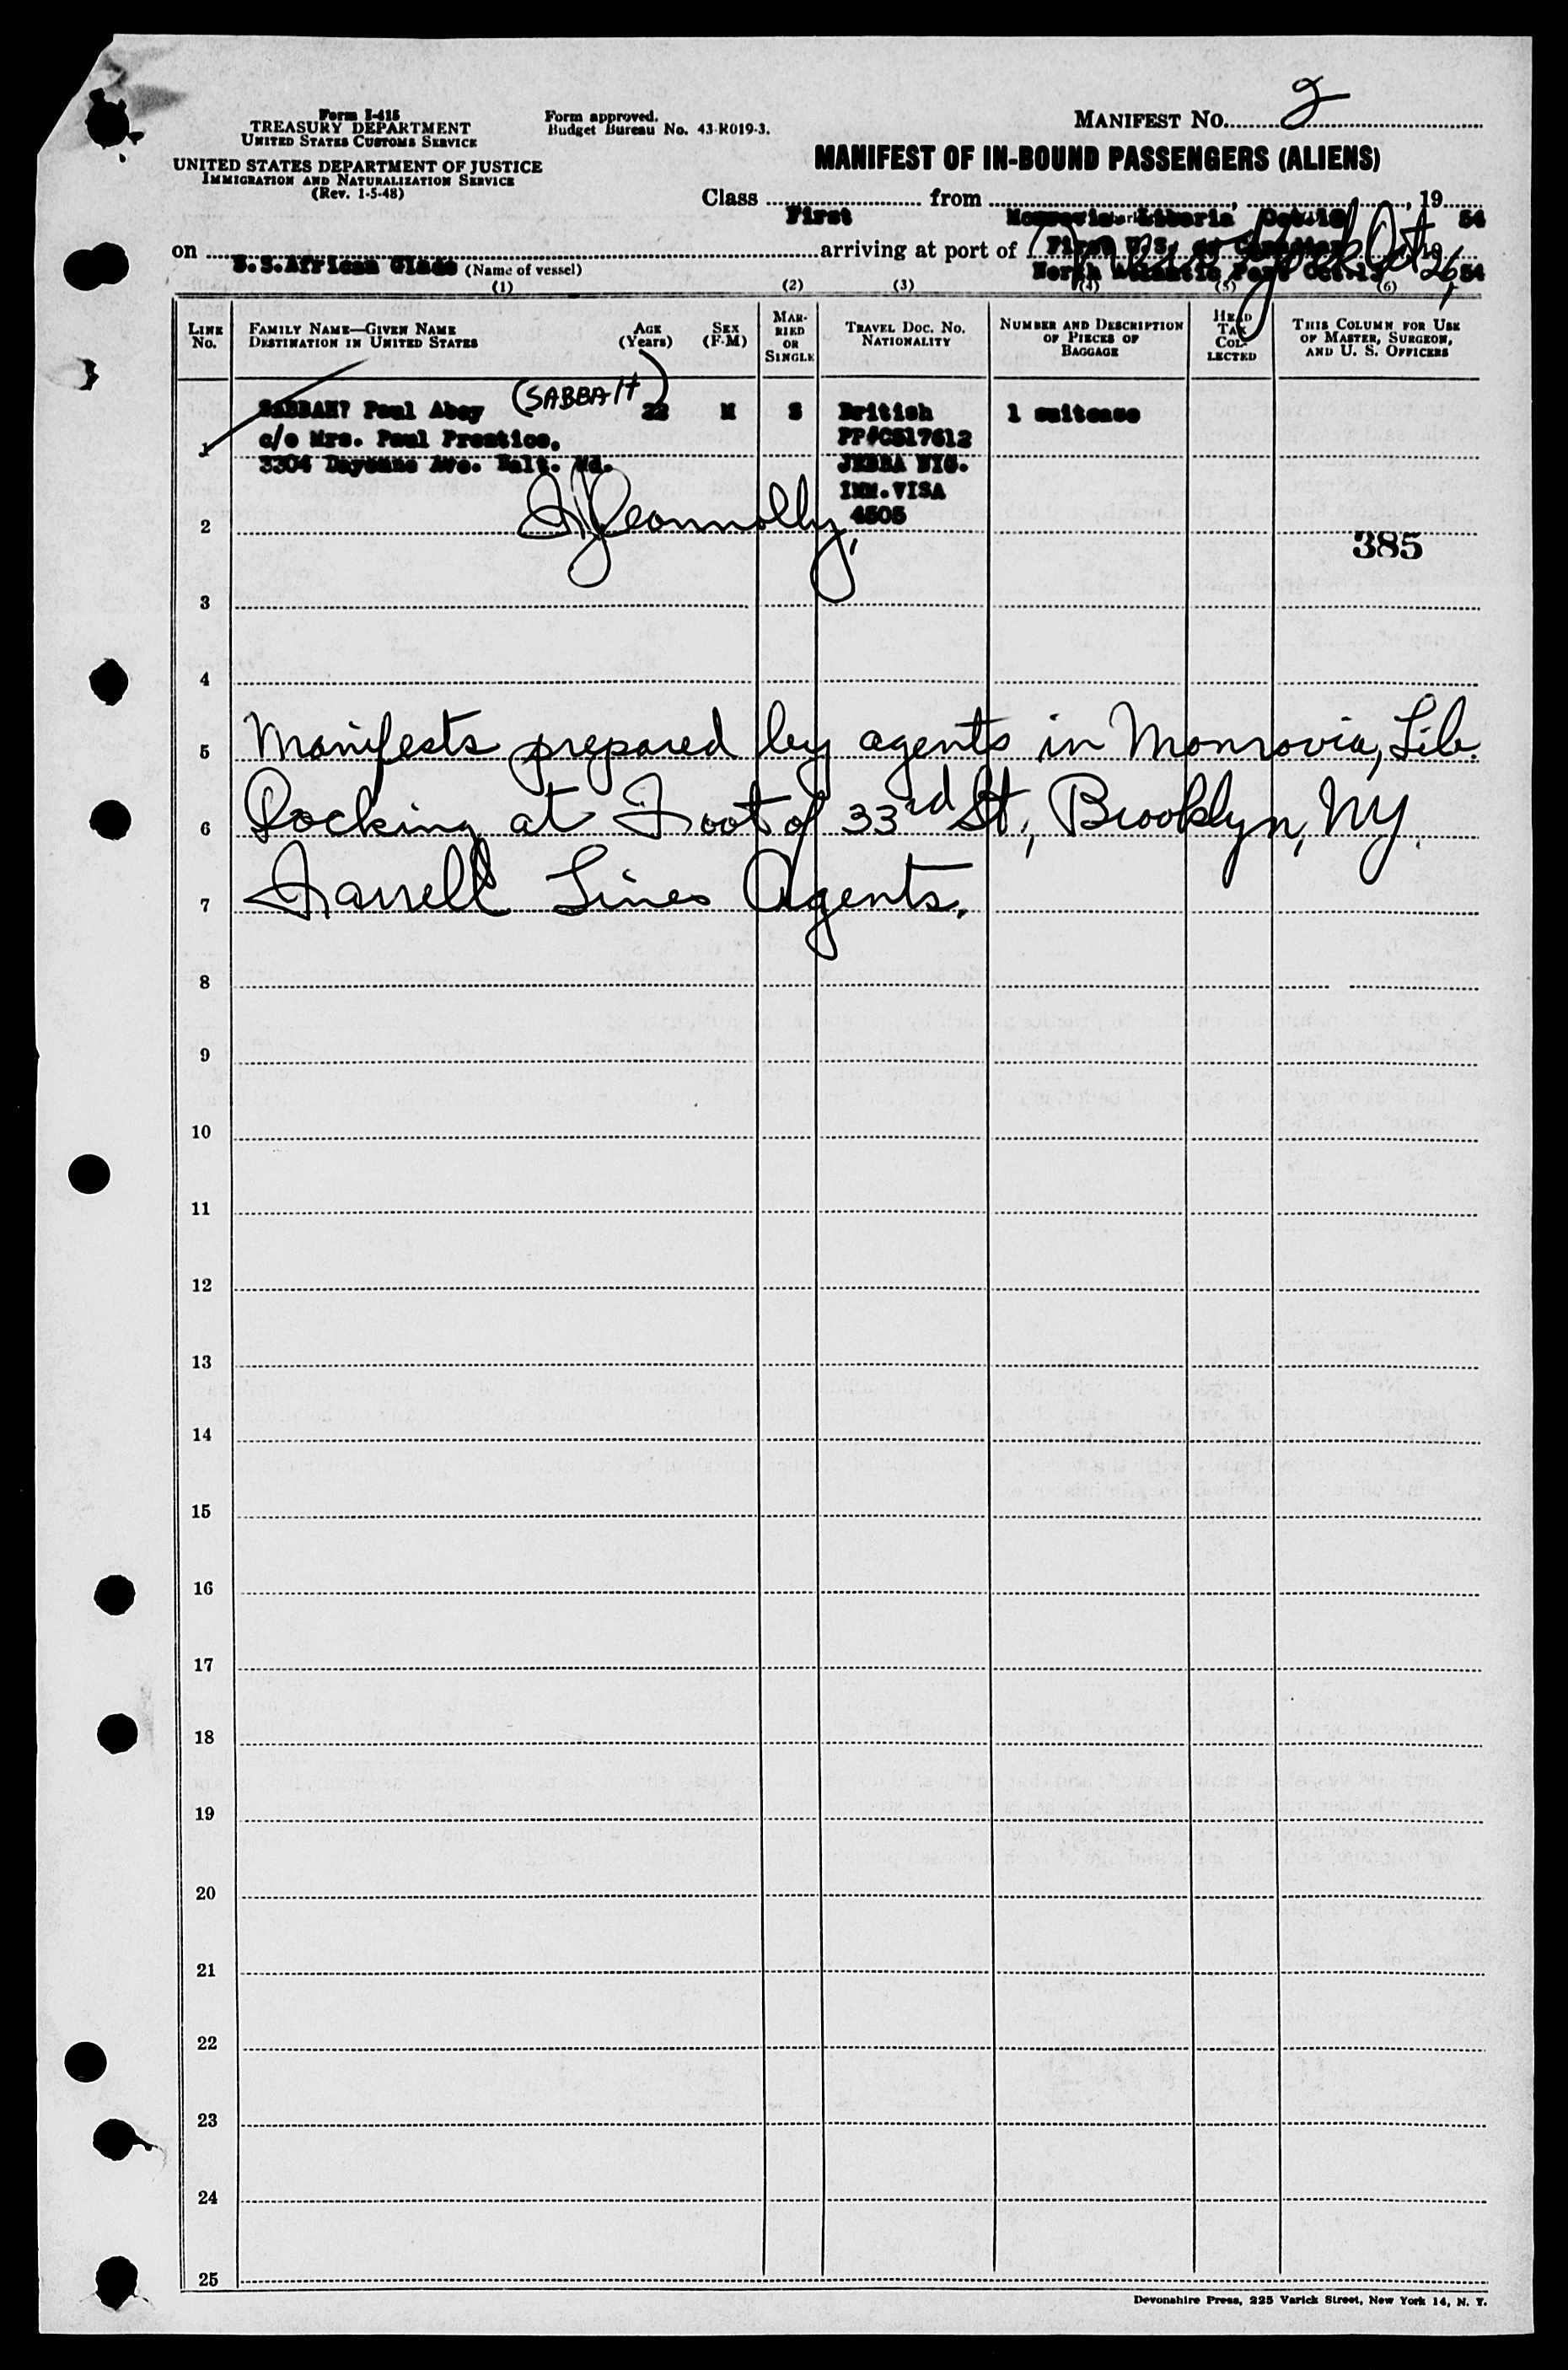 Form I-415
TREASURY DEPARTMENT
UNITED STATES CUSTOMS SERVICE
UNITED STATES DEPARTMENT OF JUSTICE
IMMIGRATION AND NATURALIZATION SERVICE
(Rev. 1-5-48)
Form approved.
Budget Bureau No. 43-R019-3.
MANIFEST NO. 2
MANIFEST OF IN-BOUND PASSENGERS (ALIENS)
Class First from Monrovia Liberia Oct. , 19 54
on S.S. African Glade (Name of vessel) arriving at port of First U.S. or
New York Oct 26,
North Atlantic Port Oct. 54
(1) (2) (3) (4) (5) (6)
LINE No. FAMILY NAME—GIVEN NAME DESTINATION IN UNITED STATES AGE (Years) SEX (F-M) MARRIED OR SINGLE TRAVEL DOC. NO. NATIONALITY NUMBER AND DESCRIPTION OF PIECES OF BAGGAGE HEAD TAX COLLECTED THIS COLUMN FOR USE OF MASTER, SURGEON, AND U. S. OFFICERS
1 SABBAH? Paul Abey (SABBAH) 22 M S British 1 suitcase
c/o Mrs. Paul Prentice, PP#C517612
3304 Ave. Balt. Md. JEBBA NIG.
IMM. VISA
2 Connolly 4505
385
3
4
5 Manifests prepared by agents in Monrovia, Lib.
6 Docking at Foot of 33rd St, Brooklyn, NY.
7 Farrell Lines Agents.
8
9
10
11
12
13
14
15
16
17
18
19
20
21
22
23
24
25
Devonshire Press, 225 Varick Street, New York 14, N. Y.